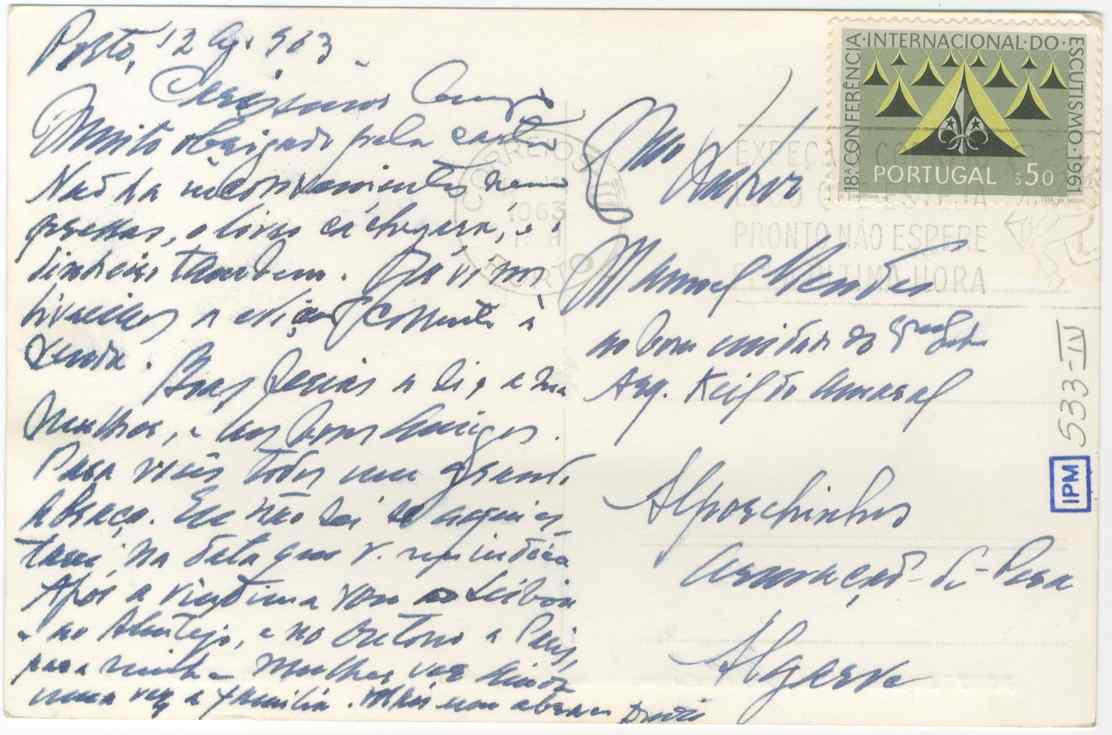 Porto, 12 Ag. 963
Caríssimo Amigo
Muito obrigado pela carta
Não há inconveniente nem
pressas, o livro cá chegará, e o
dinheiro também. Já vi nos
livreiros a edição corrente à
venda.
Boas férias a si, e a sua
mulher, e aos bons Amigos.
Para vocês todos um grande
abraço. Eu não sei se aqui es-
tarei, na data que v. me indica
Após a vindima vou a Lisboa
e ao Alentejo, e no Outono a Paris,
para minha Mulher ver ainda
uma vez a família. Mais um abraço
18ª CONFERÊNCIA · INTERNACIONAL · DO · ESCUTISMO · 1961
PORTUGAL $50
CORREIOS
1963
PORTO
PRONTO NÃO ESPERE
ÚLTIMA HORA
Manuel Mendes
ao bom cuidado do
Arq. Keil do Amaral
Alporchinhos
Armação-de-Pera
Algarve
533-IV
IPM